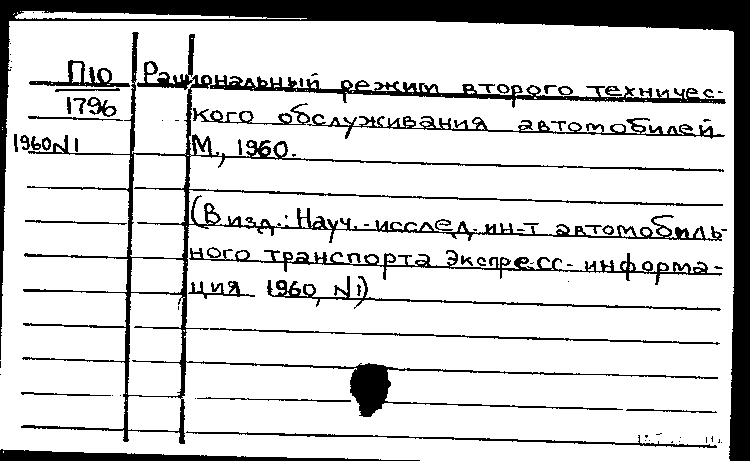 П10 Рациональный режим второго техничес-
1796 кого обслуживания автомобилей
1960 N1 М., 1960.
(В изд.: Науч.-исслед. ин-т автомобиль-
ного транспорта Экспресс-информа-
ция 1960, N1)